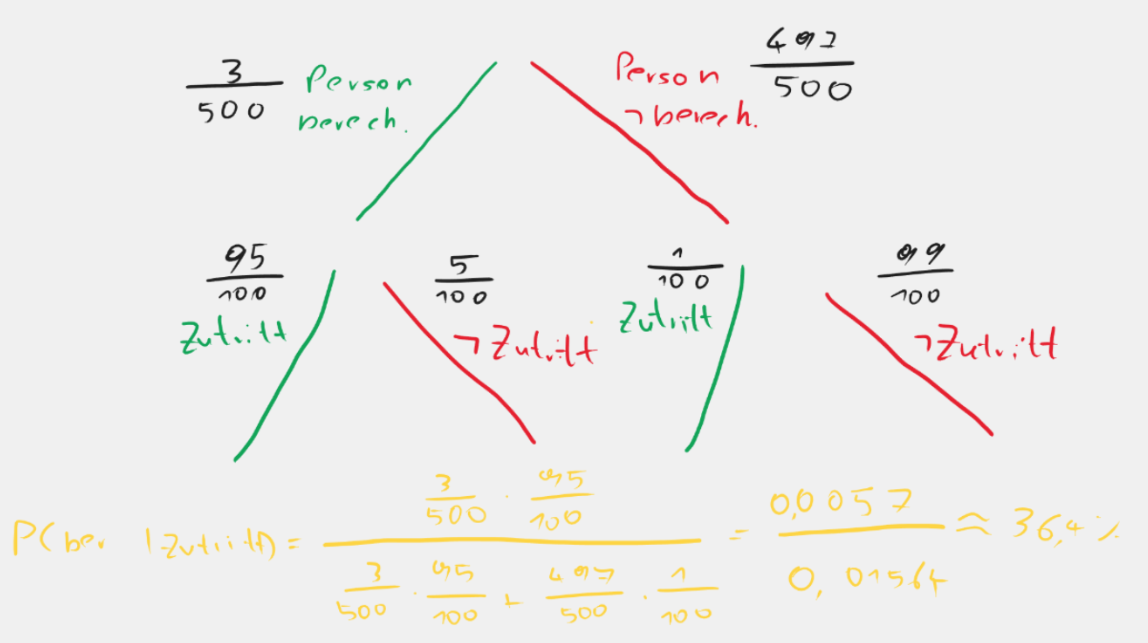 3/500 Person berech.
Person ¬berech. 497/500
95/100 Zutritt
5/100 ¬Zutritt
1/100 Zutritt
99/100 ¬Zutritt
P(ber | Zutritt) = (3/500 · 95/100) / (3/500 · 95/100 + 497/500 · 1/100) = 0,0057 / 0,01564 ≈ 36,4 %